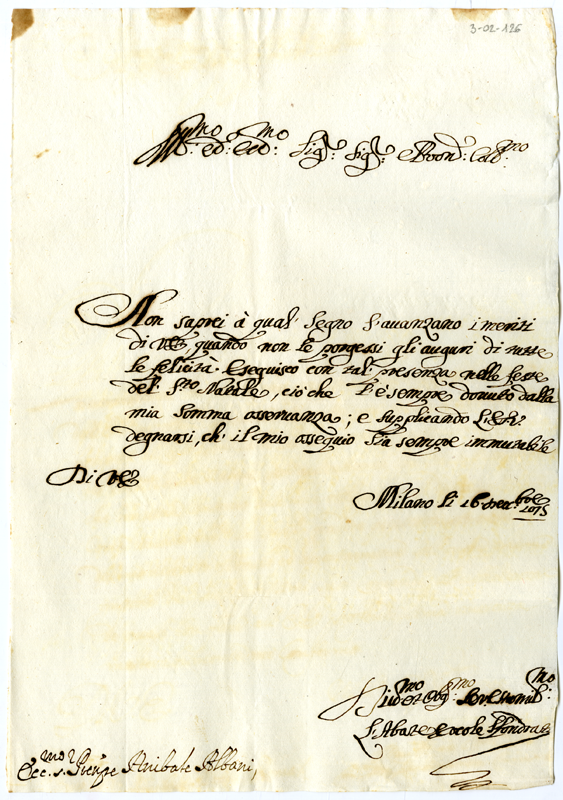 3-02-126
Ill:mo et Ecc:mo Sig:r Sig:r Pron: Col:mo
Non saprei à qual' segno s'auanzano i meriti
di VE quando non le porgessi gli auguri di tutte
le felicità. Eseguisco con tal' presenza nelle feste
del' S.to Natale, ciò che l'è sempre douuto dalla
mia somma osseruanza; e supplicando L'E.V.
degnarsi, ch' il mio ossequio sia sempre immutabile
Di VE
Milano li 16 Xbre
Diu:mo et Obg:mo Humil:mo
L'Abate Ercole
Ecc:mo S. Prencipe Anibale Albani,